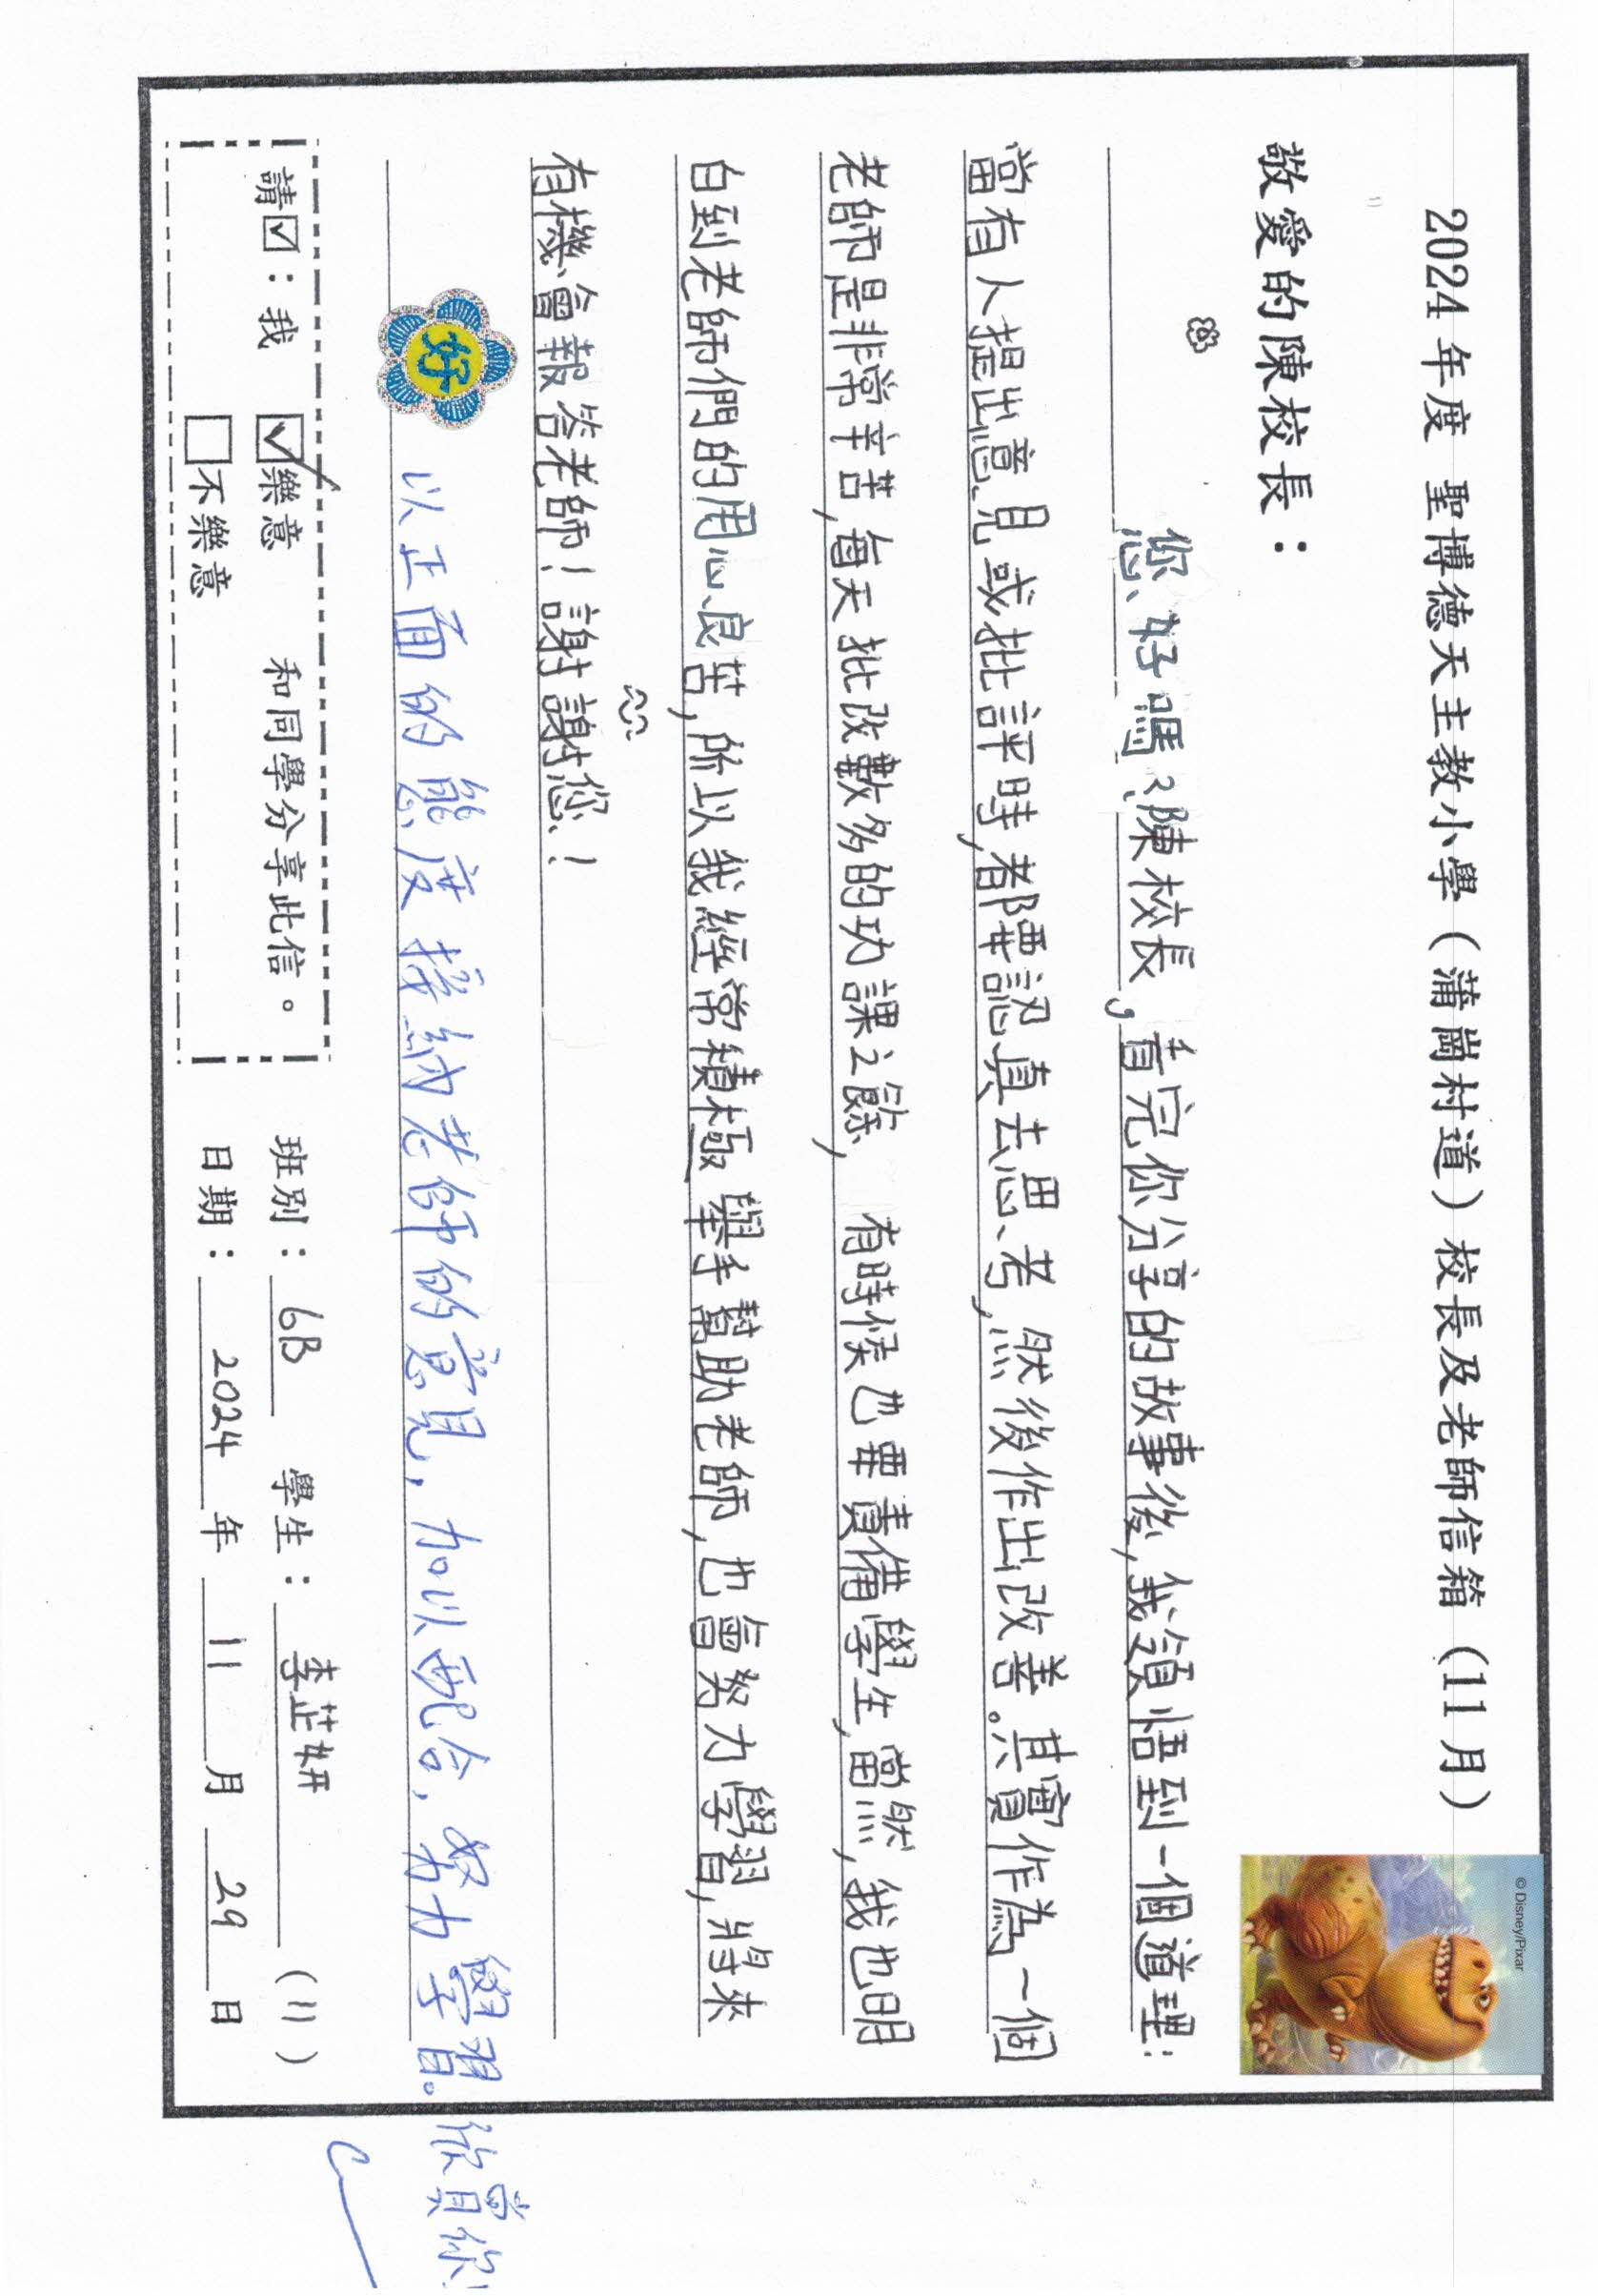 2024 年度 聖博德天主教小學（蒲崗村道）校長及老師信箱（11 月）
© Disney/Pixar
敬愛的陳校長：
您好嗎？陳校長，看完你分享的故事後，我領悟到一個道理：
當有人提出意見或批評時，都要認真去思考，然後作出改善。其實作為一個
老師是非常辛苦，每天批改數多的功課之餘，有時候也要責備學生，當然，我也明
白到老師們的用心良苦，所以我經常積極舉手幫助老師，也會努力學習，將來
有機會報答老師！謝謝您！
好
以正面的態度接納老師的意見，加以配合，努力學習。欣賞你！
請☑：我 ☑樂意 和同學分享此信。
□不樂意
班別：6B 學生：李芷妍 （11）
日期：2024 年 11 月 29 日